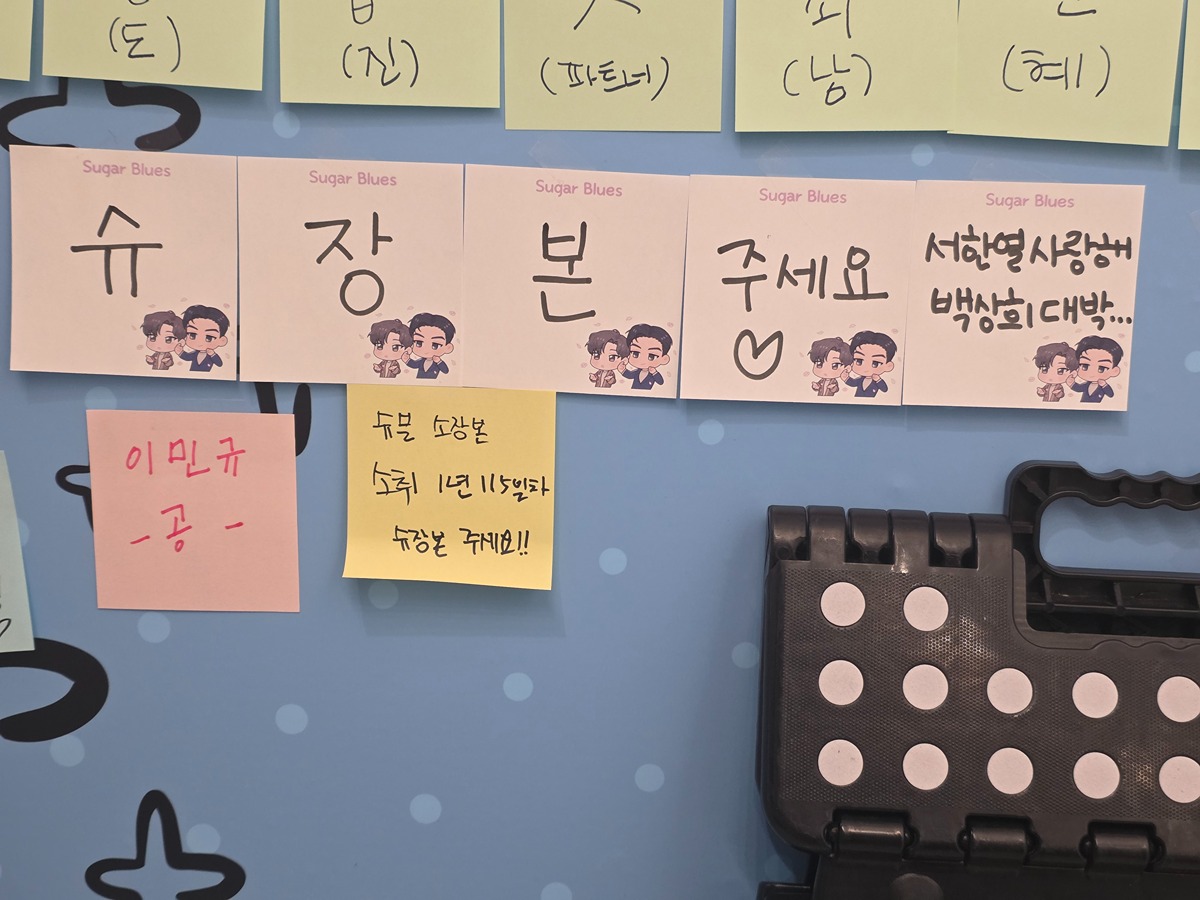 (토)
(진)
(파트너)
(남)
(혜)
Sugar Blues
슈
Sugar Blues
장
Sugar Blues
본
Sugar Blues
주세요
♡
Sugar Blues
서한열사랑해
백상희대박...
이민규
-공-
슈블 소장본
소취 1년 115일차
슈장본 주세요!!